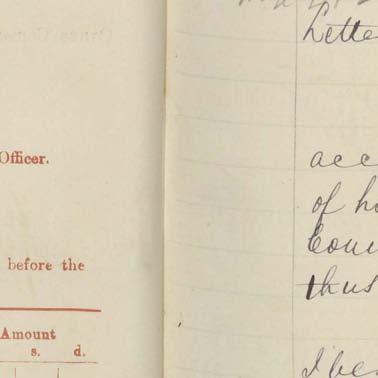 Officer.
before the
Amount
s. d.
Lette
acc
of h
Coun
thus
I be